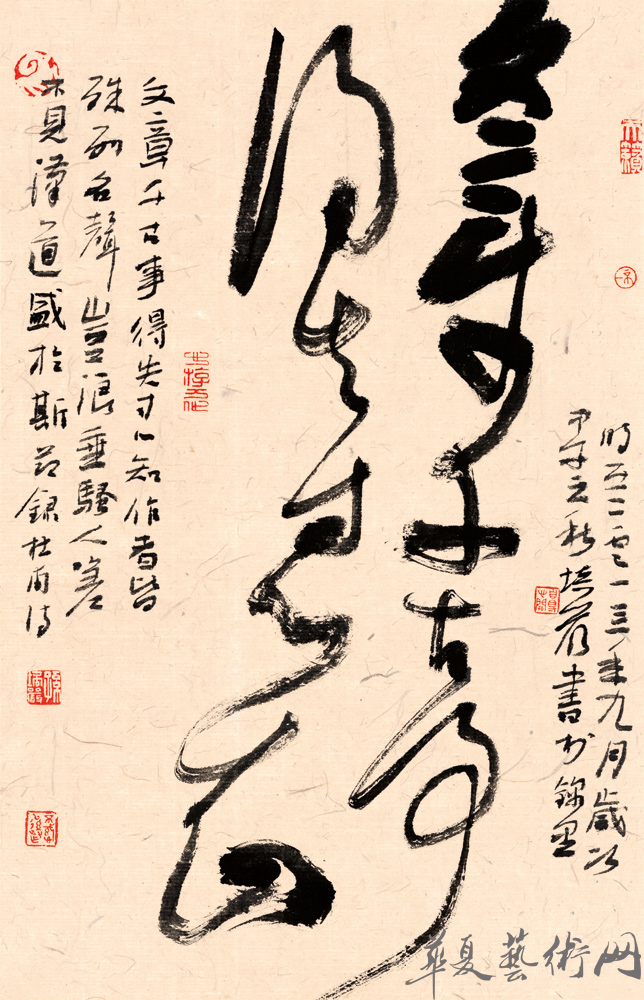 时在二零一三年九月歲次
癸巳之秋培
書於錦里
文章千古事
得失寸心知
文章千古事得失寸心知作者皆
殊列名聲豈浪垂騷人嗟
不見漢道盛於斯节錄杜甫诗
華夏藝術网